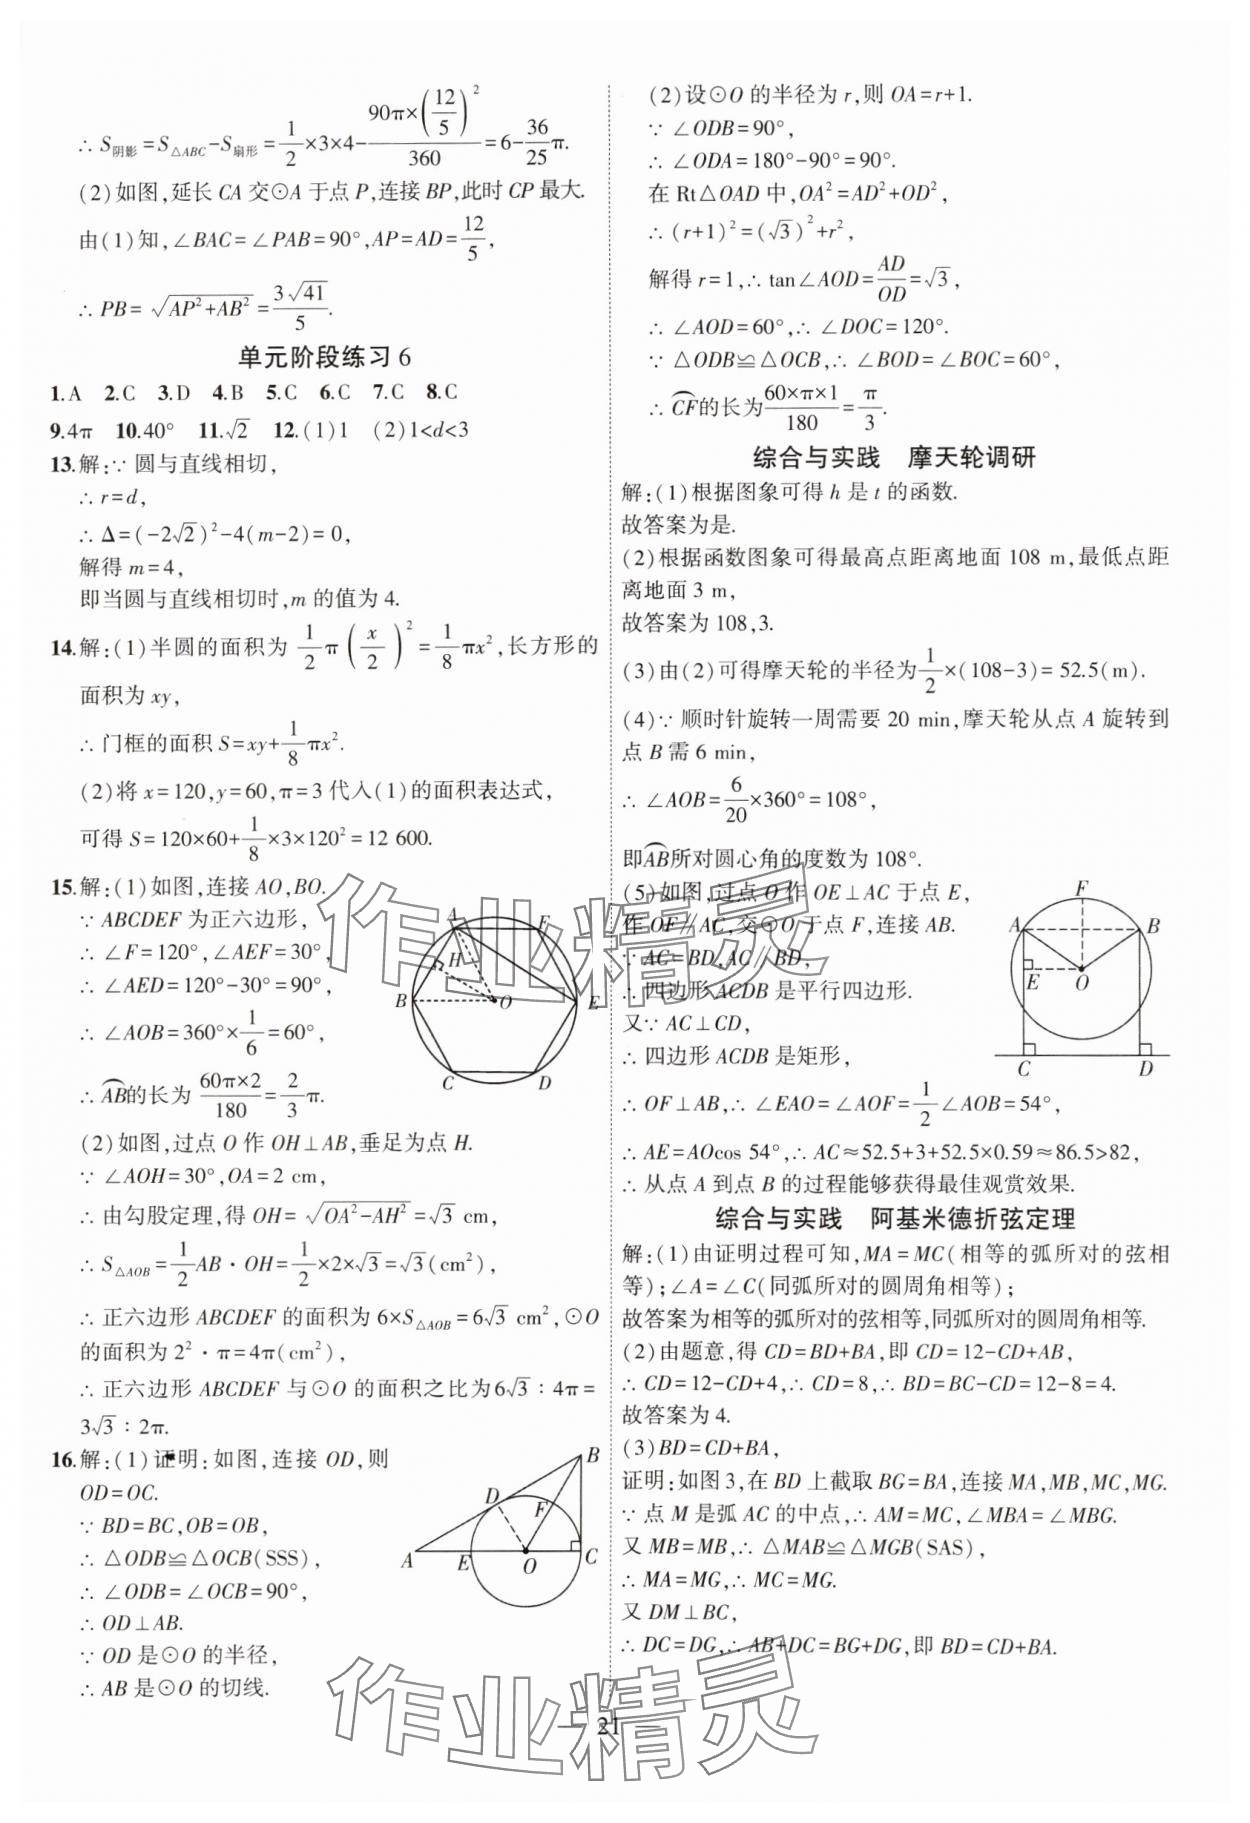 ∴ S阴影=S△ABC-S扇形=1/2×3×4-90π×(12/5)²/360=6-36/25π.
(2)如图,延长 CA 交⊙A 于点 P,连接 BP,此时 CP 最大.
由(1)知,∠BAC=∠PAB=90°,AP=AD=12/5,
∴ PB=√(AP²+AB²)=3√41/5.
单元阶段练习 6
1.A 2.C 3.D 4.B 5.C 6.C 7.C 8.C
9.4π 10.40° 11.√2 12.(1)1 (2)1<d<3
13.解:∵ 圆与直线相切,
∴ r=d,
∴ Δ=(-2√2)²-4(m-2)=0,
解得 m=4,
即当圆与直线相切时,m 的值为 4.
14.解:(1)半圆的面积为 1/2π(x/2)²=1/8πx²,长方形的
面积为 xy,
∴ 门框的面积 S=xy+1/8πx².
(2)将 x=120,y=60,π=3 代入(1)的面积表达式,
可得 S=120×60+1/8×3×120²=12 600.
15.解:(1)如图,连接 AO,BO.
∵ ABCDEF 为正六边形,
∴ ∠F=120°,∠AEF=30°,
∴ ∠AED=120°-30°=90°,
∴ ∠AOB=360°×1/6=60°,
∴ AB⌒的长为 60π×2/180=2/3π.
A F H B O E C D
(2)如图,过点 O 作 OH⊥AB,垂足为点 H.
∵ ∠AOH=30°,OA=2 cm,
∴ 由勾股定理,得 OH=√(OA²-AH²)=√3 cm,
∴ S△AOB=1/2AB·OH=1/2×2×√3=√3(cm²),
∴ 正六边形 ABCDEF 的面积为 6×S△AOB=6√3 cm²,⊙O
的面积为 2²·π=4π(cm²),
∴ 正六边形 ABCDEF 与⊙O 的面积之比为6√3∶4π=
3√3∶2π.
16.解:(1)证明:如图,连接 OD,则
OD=OC.
∵ BD=BC,OB=OB,
∴ △ODB≌△OCB(SSS),
∴ ∠ODB=∠OCB=90°,
∴ OD⊥AB.
∵ OD 是⊙O 的半径,
∴ AB 是⊙O 的切线.
B D F A E O C
(2)设⊙O 的半径为 r,则 OA=r+1.
∵ ∠ODB=90°,
∴ ∠ODA=180°-90°=90°.
在 Rt△OAD 中,OA²=AD²+OD²,
∴ (r+1)²=(√3)²+r²,
解得 r=1,∴ tan∠AOD=AD/OD=√3,
∴ ∠AOD=60°,∴ ∠DOC=120°.
∵ △ODB≌△OCB,∴ ∠BOD=∠BOC=60°,
∴ CF⌒的长为60×π×1/180=π/3.
综合与实践 摩天轮调研
解:(1)根据图象可得 h 是 t 的函数.
故答案为是.
(2)根据函数图象可得最高点距离地面 108 m,最低点距
离地面 3 m,
故答案为 108,3.
(3)由(2)可得摩天轮的半径为1/2×(108-3)=52.5(m).
(4)∵ 顺时针旋转一周需要 20 min,摩天轮从点 A 旋转到
点 B 需 6 min,
∴ ∠AOB=6/20×360°=108°,
即AB⌒所对圆心角的度数为 108°.
(5)如图,过点 O 作 OE⊥AC 于点 E,
作 OF∥AC,交⊙O于点 F,连接 AB.
∵ AC=BD,AC∥BD,
∴ 四边形ACDB 是平行四边形.
又∵ AC⊥CD,
∴ 四边形 ACDB 是矩形,
F A B E O C D
∴ OF⊥AB,∴ ∠EAO=∠AOF=1/2∠AOB=54°,
∴ AE=AOcos 54°,∴ AC≈52.5+3+52.5×0.59≈86.5>82,
∴ 从点 A 到点 B 的过程能够获得最佳观赏效果.
综合与实践 阿基米德折弦定理
解:(1)由证明过程可知,MA=MC(相等的弧所对的弦相
等);∠A=∠C(同弧所对的圆周角相等);
故答案为相等的弧所对的弦相等,同弧所对的圆周角相等.
(2)由题意,得 CD=BD+BA,即 CD=12-CD+AB,
∴ CD=12-CD+4,∴ CD=8,∴ BD=BC-CD=12-8=4.
故答案为 4.
(3)BD=CD+BA,
证明:如图 3,在 BD 上截取 BG=BA,连接 MA,MB,MC,MG.
∵ 点 M 是弧 AC 的中点,∴ AM=MC,∠MBA=∠MBG.
又 MB=MB,∴ △MAB≌△MGB(SAS),
∴ MA=MG,∴ MC=MG.
又 DM⊥BC,
∴ DC=DG,∴ AB+DC=BG+DG,即 BD=CD+BA.
作业精灵
作业精灵
— 21 —